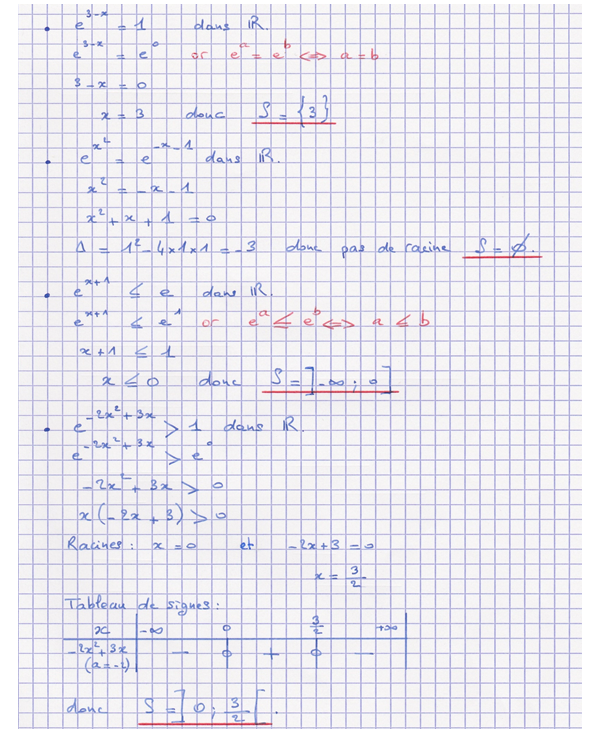 • e^{3-x} = 1 dans ℝ.
e^{3-x} = e^0 or e^a = e^b <=> a = b
3-x = 0
x = 3 donc S = {3}
• e^{x^2} = e^{-x-1} dans ℝ.
x^2 = -x-1
x^2 + x + 1 = 0
Δ = 1^2 - 4×1×1 = -3 donc pas de racine S = ∅.
• e^{x+1} ≤ e dans ℝ.
e^{x+1} ≤ e^1 or e^a ≤ e^b <=> a ≤ b
x+1 ≤ 1
x ≤ 0 donc S = ]-∞ ; 0]
• e^{-2x^2+3x} > 1 dans ℝ.
e^{-2x^2+3x} > e^0
-2x^2 + 3x > 0
x(-2x+3) > 0
Racines : x = 0 et -2x+3 = 0
x = 3/2
Tableau de signes :
x -∞ 0 3/2 +∞
-2x^2+3x - 0 + 0 -
(a=-2)
donc S = ]0 ; 3/2[.